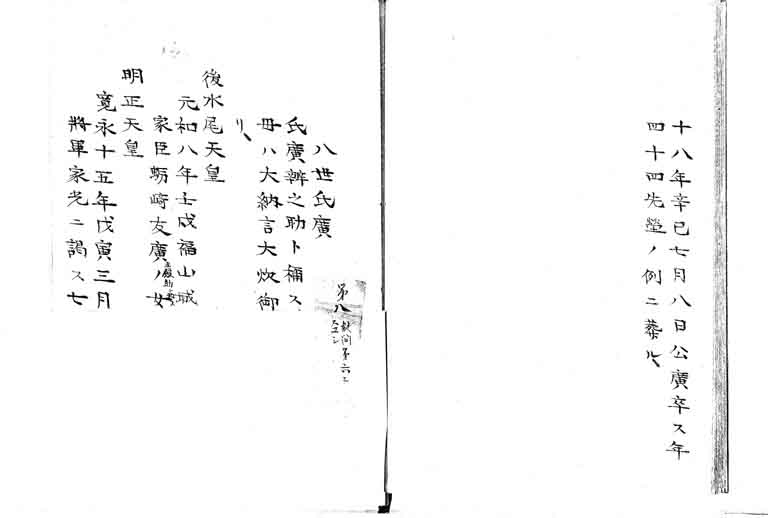 十八年辛巳七月八日公廣卒ス年
四十四先塋ノ例ニ葬ル、
八世氏廣
氏廣辨之助ト稱ス
毋ハ大納言大炊御
リ、
後水尾天皇
元和八年壬戌福山城
家臣蛎崎友廣ノ女
明正天皇
寛永十五年戊寅三月
將軍家光ニ謁ス七
第八